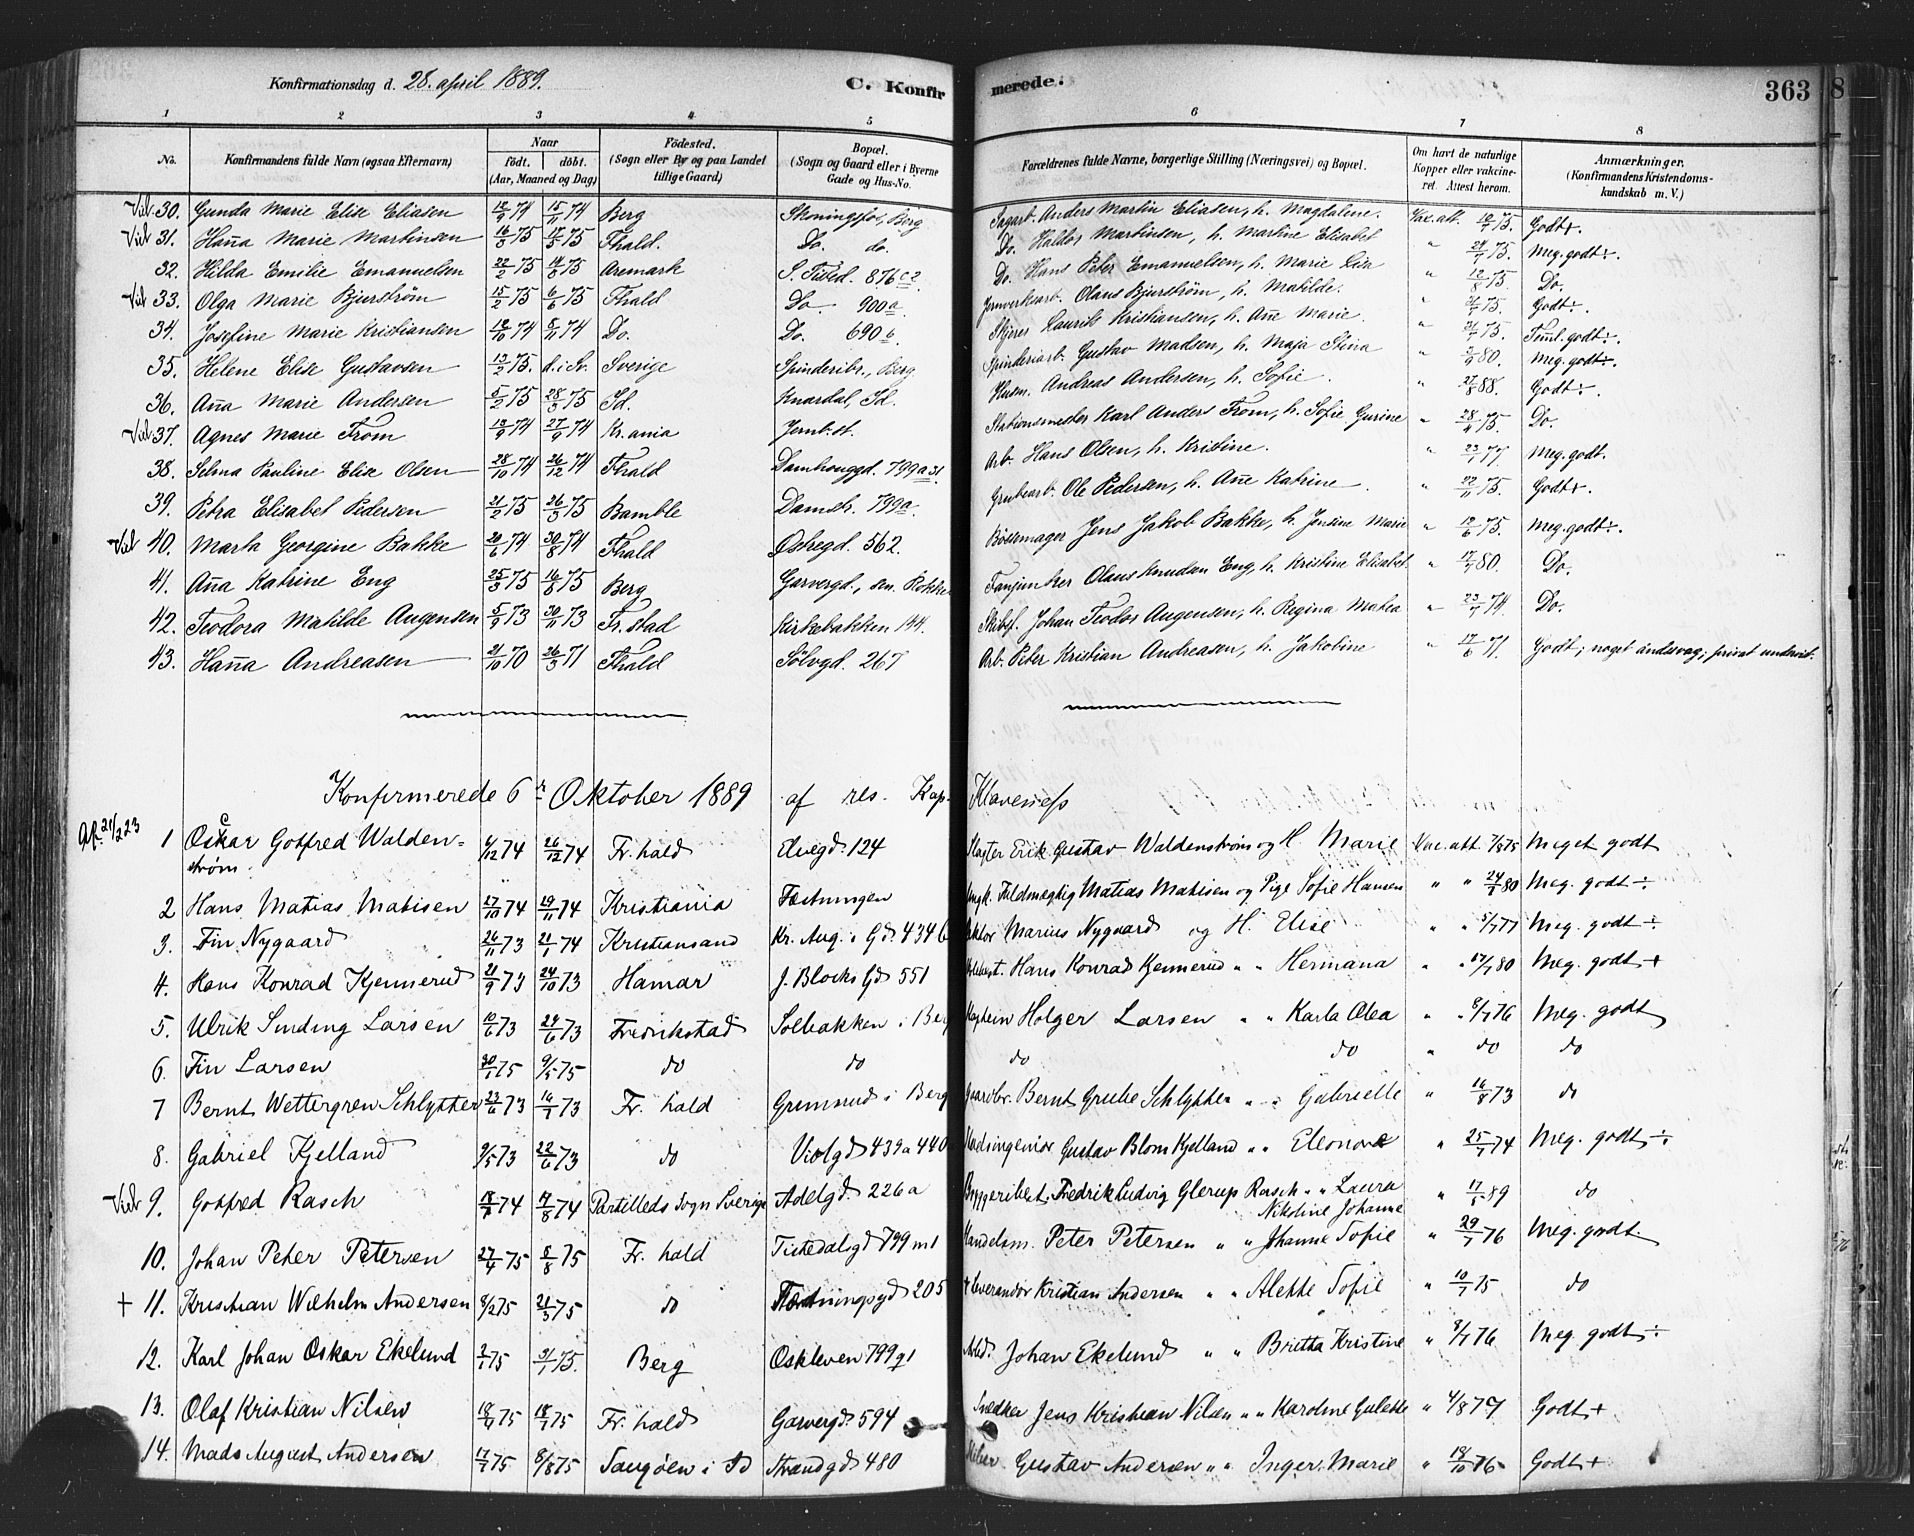 Konfirmationsdag d. 28. april 1889. C. Konfirmerede. 363
1 2 3 4 5 6 7 8
No. Konfirmandens fulde Navn (ogsaa Efternavn) Naar født. døbt. (Aar, Maaned og Dag) Födested. (Sogn eller By og paa Landet tillige Gaard) Bopæl. (Sogn og Gaard eller i Byerne Gade og Hus-No. Forældrenes fulde Navne, borgerlige Stilling (Næringsvei) og Bopæl. Om havt de naturlige Kopper eller vakcineret. Attest herom. Anmærkninger, (Konfirmandens Kristendomskundskab m. V.)
30. Gunda Marie Elise Eliasen 74 15/11 74 Berg Skoningsfos, Berg Sagarb. Anders Martin Eliasen, h. Magdalene. Vac. att. 75. Godt+.
31. Hana Marie Martinsen 16/3 75 17/5 75 Fhald. Do. do. Do. Haldor Martinsen, h. Martine Elisabet " 75. Meg. godt÷.
32. Hilda Emilie Emanuelsen 22/2 75 75 Aremark S. Tisted. 876 c2. Do. Hans Peter Emanuelsen, h. Marie Lisa " 12/8 75. Do.
33. Olga Marie Bjurström 15/2 75 6/6 75 Fhald Do. 900a. Jernverksarb. Olaus Bjurström, h. Matilde. " 75. Godt÷.
34. Josefine Marie Kristiansen 74 8/11 74 Do. Do. 690 b. Skyer Laurits Kristiansen, h. Ane Marie. " 75. Teml. godt÷.
35. Helene Elise Gustavsen 13/2 75 d. i Sv. Sverige Spinderibr., Berg Spinderiarb. Gustav Madsen, h. Maja Stina " 80. Meg. godt÷.
36. Ana Marie Andersen 5/2 75 28/3 75 Id. Knardal, Id. Husm. Andreas Andersen, h. Sofie. " 27/8 88. Godt÷.
37. Agnes Marie From 74 27/9 74 Kr.ania Jernb.st. Stationsmester Karl Anders From, h. Sofie Gurine " 75. Do.
38. Selma Pauline Elise Olsen 28/10 74 26/12 74 Fhald Damhauggd. 799a 31 Arb. Hans Olsen, h. Kristine. " 77. Meg. godt.
39. Petra Elisabet Pedersen 21/2 75 26/3 75 Bamble Damsh. 799a. Grubearb. Ole Pedersen, h. Ane Katrine. " 22/11 75. Godt+.
40. Marta Georgine Bakke 20/6 74 30/8 74 Fhald Østregd. 562. Bössemager Jens Jakob Bakke, h. Jensine Marie " 75. Meg. godt÷.
41. Ana Katrine Eng 25/3 75 16/5 75 Berg Garvergd., sen. Rokke Fanejunker Olaus Knudsen Eng, h. Kristine Elisabet. " 80. Do.
42. Teodora Matilde Augensen 5/9 73 30/11 73 Fr.stad Kirkebakken 144. Skibsf. Johan Teodor Augensen, h. Regina Matea " 74. Do.
43. Hana Andreasen 21/10 70 26/3 71 Fhald Sölvgd. 267 Arb. Peter Kristian Andreasen, h. Jakobine " 17/6 71. Godt; noget andssvag; privat undervist.
Konfirmerede 6te Oktober 1889 af res. Kap. Klaveness
Af. 21/2 23 1 Oskar Gotfred Waldenström. 6/12 74 26/12 74 Fr. hald Elvegd. 124 Slagter Erik Gustav Waldenström og H. Marie Vac. att. 7/8 75 Meget godt
2 Hans Matias Matisen 27/10 74 29/11 74 Kristiania Fæstningen Ungk. Fuldmægtig Matias Matisen og Pige Sofie Hansen " " 80 Meg. godt÷
3. Fin Nygaard 26/11 73 21/1 74 Kristiansand Kr. Aug. s Gd. 434 b Marius Nygaard og H. Elise " " 5/7 77 Meg. godt÷
4. Hans Konrad Kjennerud 21/9 73 24/10 73 Hamar J. Blocks Gd 551 Hans Konrad Kjennerud " " Hermana " " 17/7 80 Meg. godt+
5. Ulrik Sinding Larsen 10/5 73 24/6 73 Fredrikstad Solbakken i Berg Holger Larsen " " Karla Olea " " 8/7 76 Meg. godt
6. Fin Larsen 30/1 75 9/5 75 do do do do " do do
7 Bernt Wettergren Schlytter 23/6 73 73 Fr. hald Gremsrud i Berg Gaardbr. Bernt Grube Schlytter " " Gabrielle " 16/8 73 do
8. Gabriel Kjelland 9/5 73 22/6 73 do Violgd 439a 440 Stadsingeniør Gustav Blom Kjelland " " Eleonore " 25/7 74 Meg. godt÷
9. Gotfred Rasch 74 17/8 74 Partilleds Sogn Sverige Adelgd. 226a Byggeribest. Fredrik Ludvig Glerup Rasch " " Laura Nikoline Johanne " 17/5 89 do
10. Johan Peter Petersen 27/4 75 8/8 75 Fr. hald Tistedalsgd 799 m1 Handelsm. Peter Petersen " " Johanne Sofie " 29/7 76 Meg. godt.
+ 11. Kristian Wilhelm Andersen 8/2 75 21/3 75 do Fæstningsgd 205 + Leverandør Kristian Andersen " " Alette Sofie " 10/7 75 do
12. Karl Johan Oskar Ekelund 75 75. Berg Oskleven 799 q1 Johan Ekelund " " Britta Kristine " 8/7 76 Meg. godt÷
13. Olaf Kristian Nilsen 75 75 Fr. hald Garvergd. 594 Snedker Jens Kristian Nilsen " " Karoline Gulette " 4/8 79 Godt+
14. Mads August Andersen 75 8/8 75 Sauöen i Id Strandgd 480 Gustav Andersen " " Inger Marie " 76 Godt+